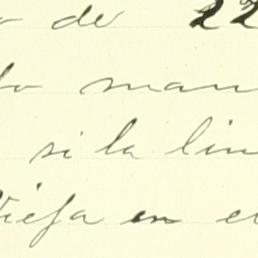 de 22
man
si la lin
Vieja en el